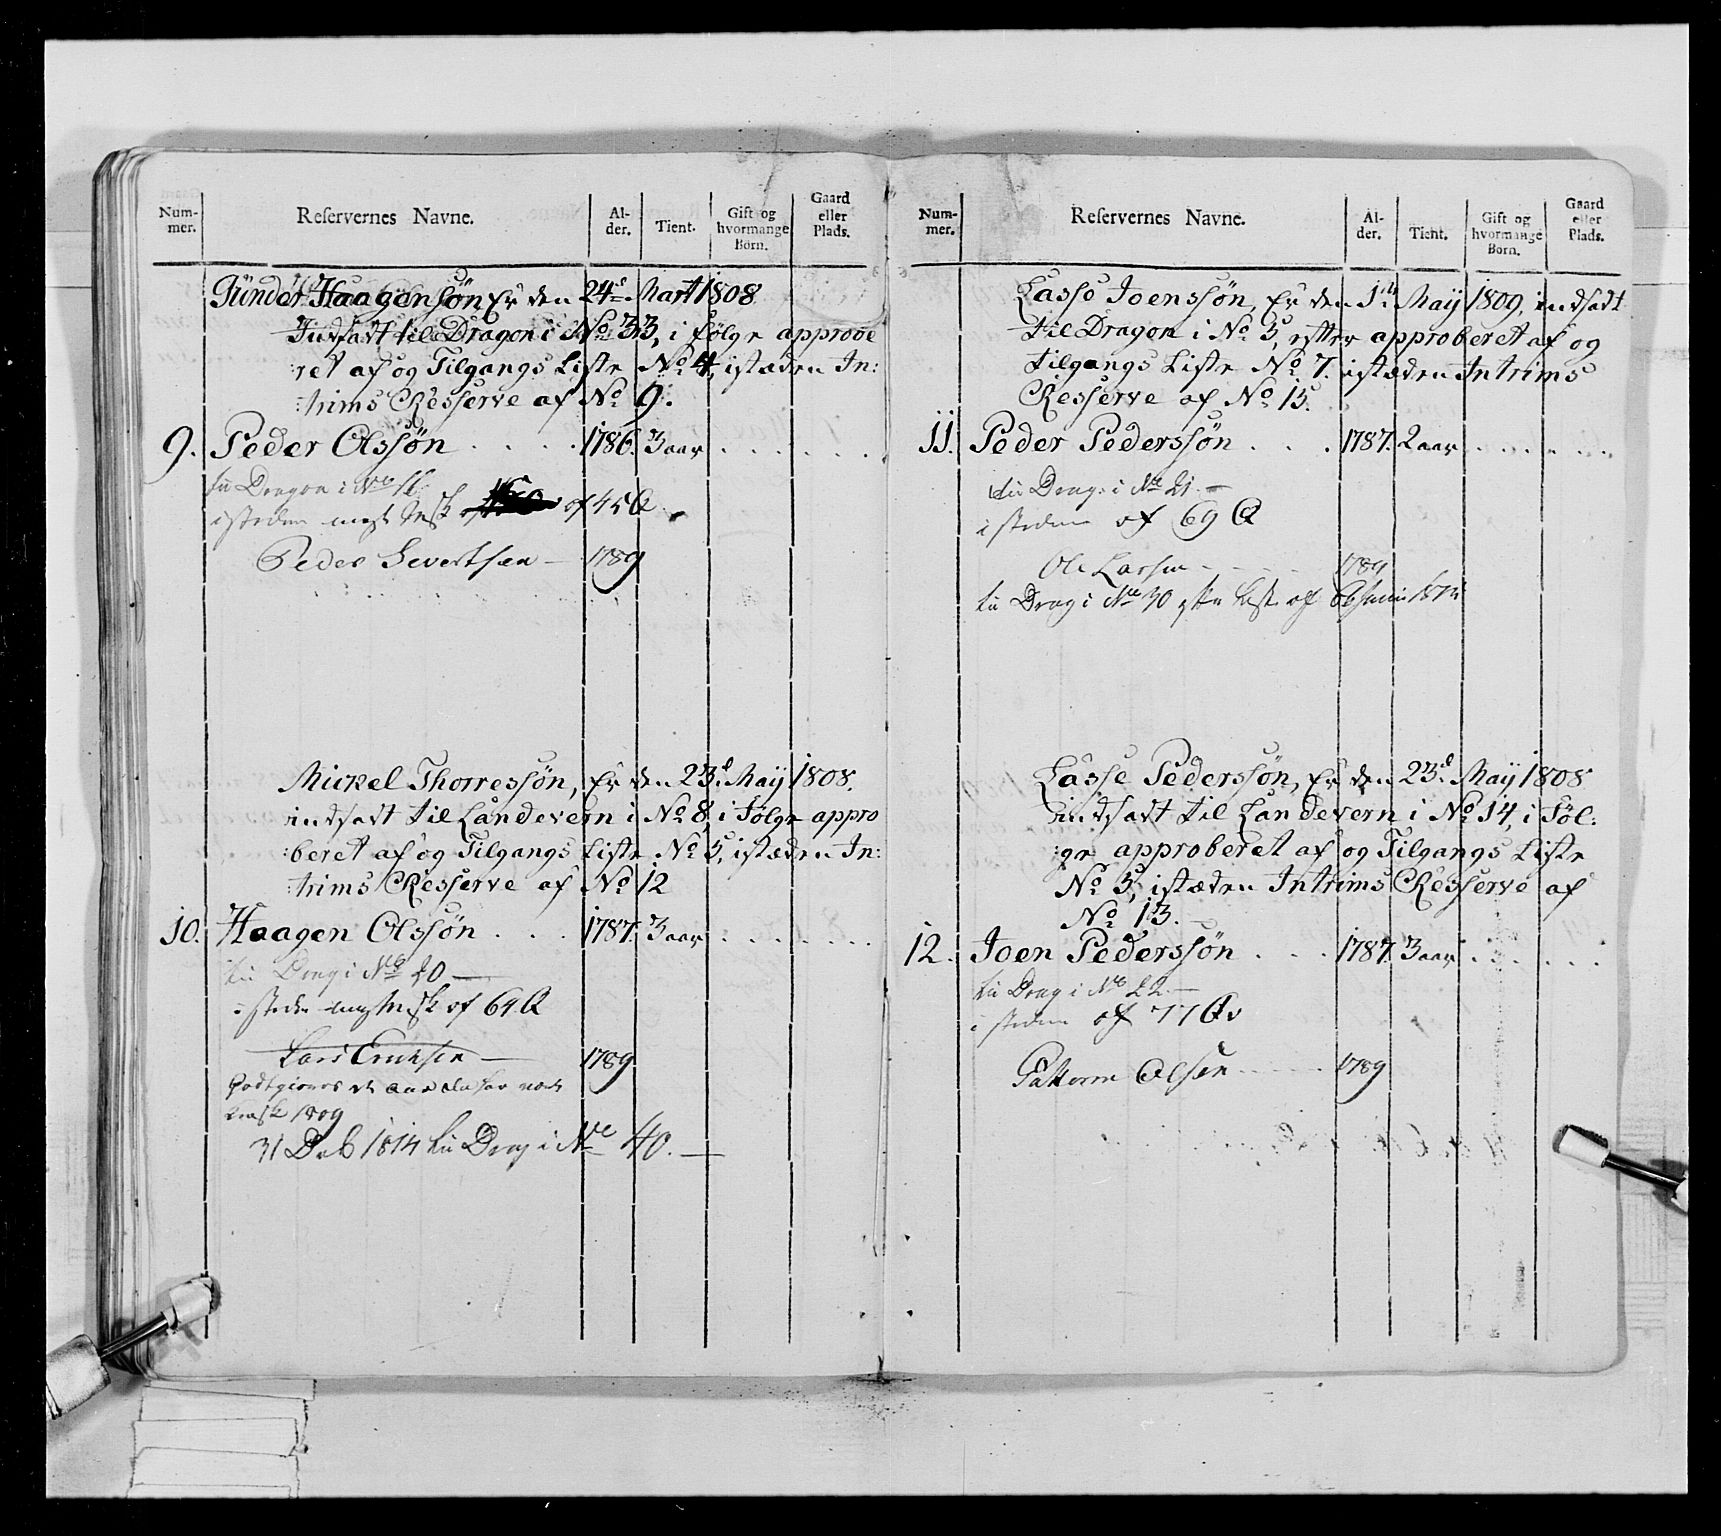 Num-
mer.
Reservernes Navne.
Al-
der.
Tient.
Gift og
hvormange
Børn.
Gaard
eller
Plads.
Günder Haagensøn Er den 24de Mart 1808
Indsadt til Dragon i No 33, i følge approve
ret af og Tilgangs Liste No 4, istæden In:
:trims Resserve af No 9.
9. Peder Olssøn . . . . 1786. 3 aar . . . . . .
til Dragon i No 16
isteden af 45 Q
Peder Severtsen — 1789
Mickel Thorressøn, Er den 23d Maij 1808.
indsadt til Landevern i No 8, i Følge appro
:beret af og Tilgangs Liste No 5, istæden In:
:trims Resserve af No 12
10. Haagen Olssøn . . . 1787. 3 aar . . . . . .
til Drag i No 20 —
isteden af 64 Q
Lars Erichsen — 1789
Godtgiores et aar
1809
31 Deb 1814 til Drag i No 40. —
Num-
mer.
Reservernes Navne.
Al-
der.
Tient.
Gift og
hvormange
Børn.
Gaard
eller
Plads.
Lasse Joenssøn, Er den 1te Maij 1809, indsadt
til Dragon i No 5, efter approberet af og
tilgangs Liste No 7. istæden Intrims
Resserve af No 15.
11. Peder Pederssøn . . . 1787. 2 aar . . . . . .
til Drag: i No 21. —
isteden af 69 Q
Ole Larsen - - - - 1789
til Drag i No 30 efter Liste af
Lasse Pederssøn, Er den 23d Maij 1808
indsadt til Landevern i No 14, i Føl:
:ge approberet af og Tilgangs Liste
No 5, istæden Intrims Resserve af
No 13.
12. Joen Pederssøn . . . 1787. 3 aar . . . . . .
til Drag i No 22. —
isteden af 77
Guttorm Olsen . . . . 1789